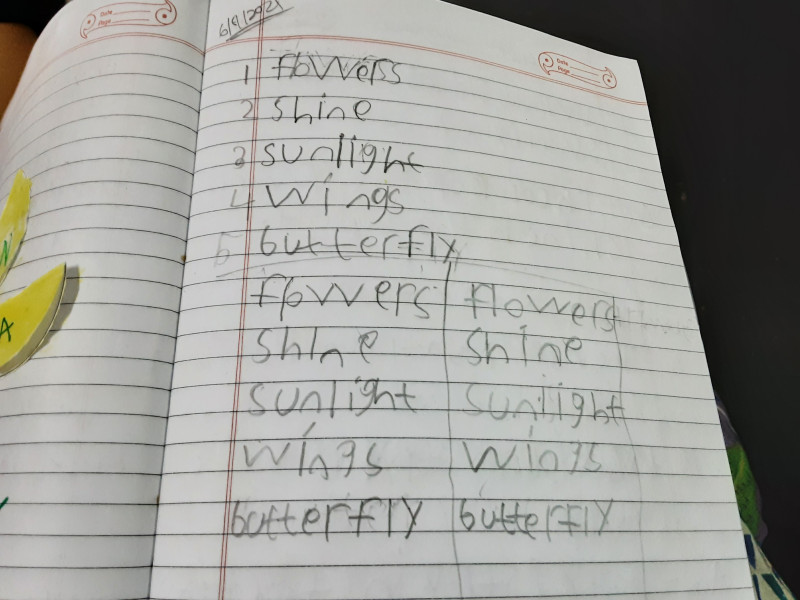 Date
Page
6/9/2021
Date
Page
1 flowers
2 shine
3 sunlight
4 wings
5 butterfly
flowers flowers
shine shine
sunlight sunlight
wings wings
butterfly butterfly
N
A